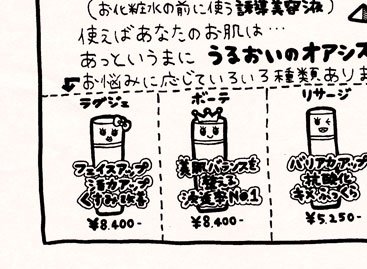 （お化粧水の前に使う誘導美容液）
使えばあなたのお肌は…
あっというまに うるおいのオアシス
お悩みに応じていろいろ種類ありま
ラグジェ
フェイスアップ
活力アップ
くすみ改善
¥8.400-
ボーテ
美肌バランスを
整える
浸透率No1
¥8.400-
リサージ
バリアカアップ
抗酸化
キメふっくら
¥5.250-